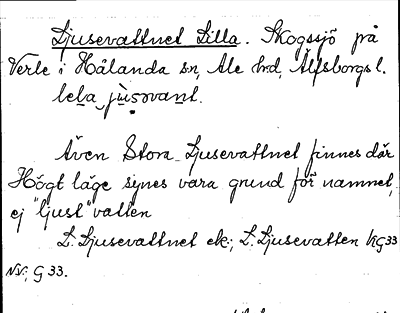 Ljusevattnet Lilla. Skogssjö på
Verle i Hålanda sn, Ale hd, Älfsborgs l.
lɩla jùsəvant.
Även Stora Ljusevattnet finnes där
Högt läge synes vara grund för namnet,
ej "ljust" vatten
L. Ljusevattnet ek.; L. Ljusevatten HG33
NV; G 33.